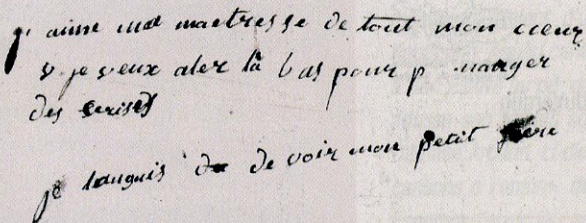 j aime ma maetresse de tout mon cœur
& je veux aler là bas pour p manger
des serises
je languis de de voir mon petit frère